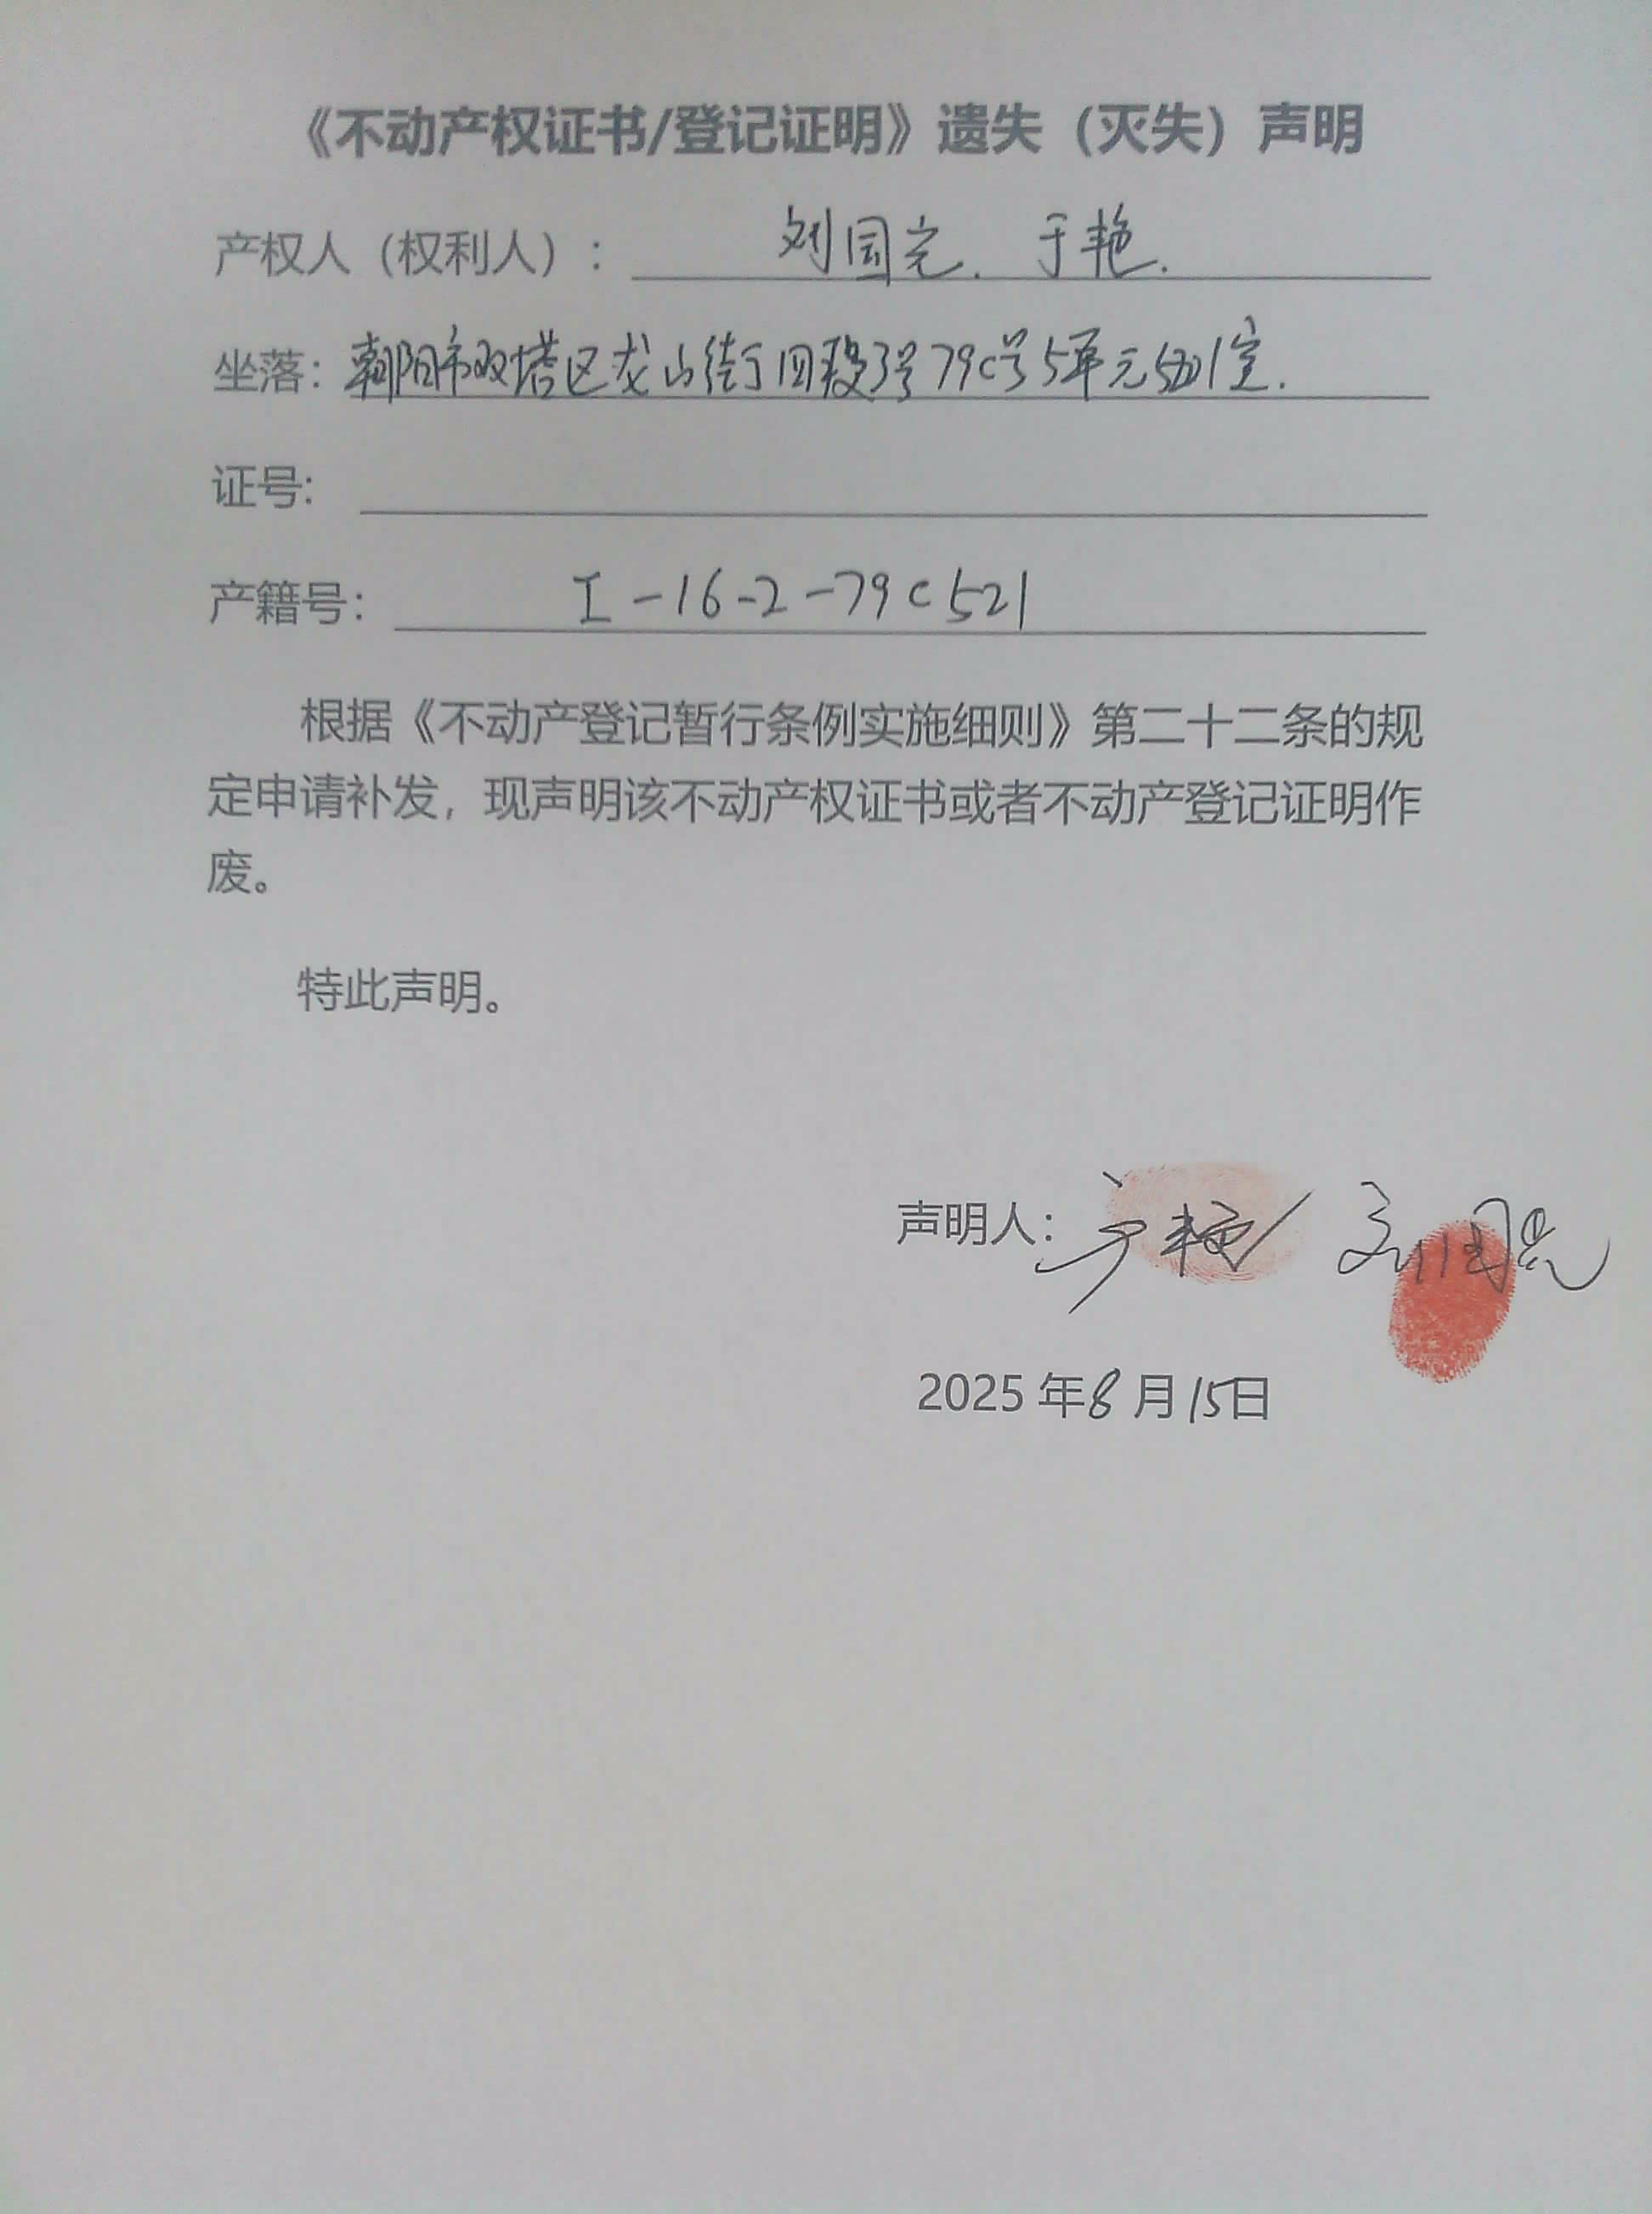 《不动产权证书/登记证明》遗失（灭失）声明
产权人（权利人）: 刘国完、于艳.
坐落: 朝阳市双塔区龙山街四段3号79C号5单元521室.
证号:
产籍号: I-16-2-79C521
根据《不动产登记暂行条例实施细则》第二十二条的规
定申请补发，现声明该不动产权证书或者不动产登记证明作
废。
特此声明。
声明人: 于艳 刘国
2025年8月15日